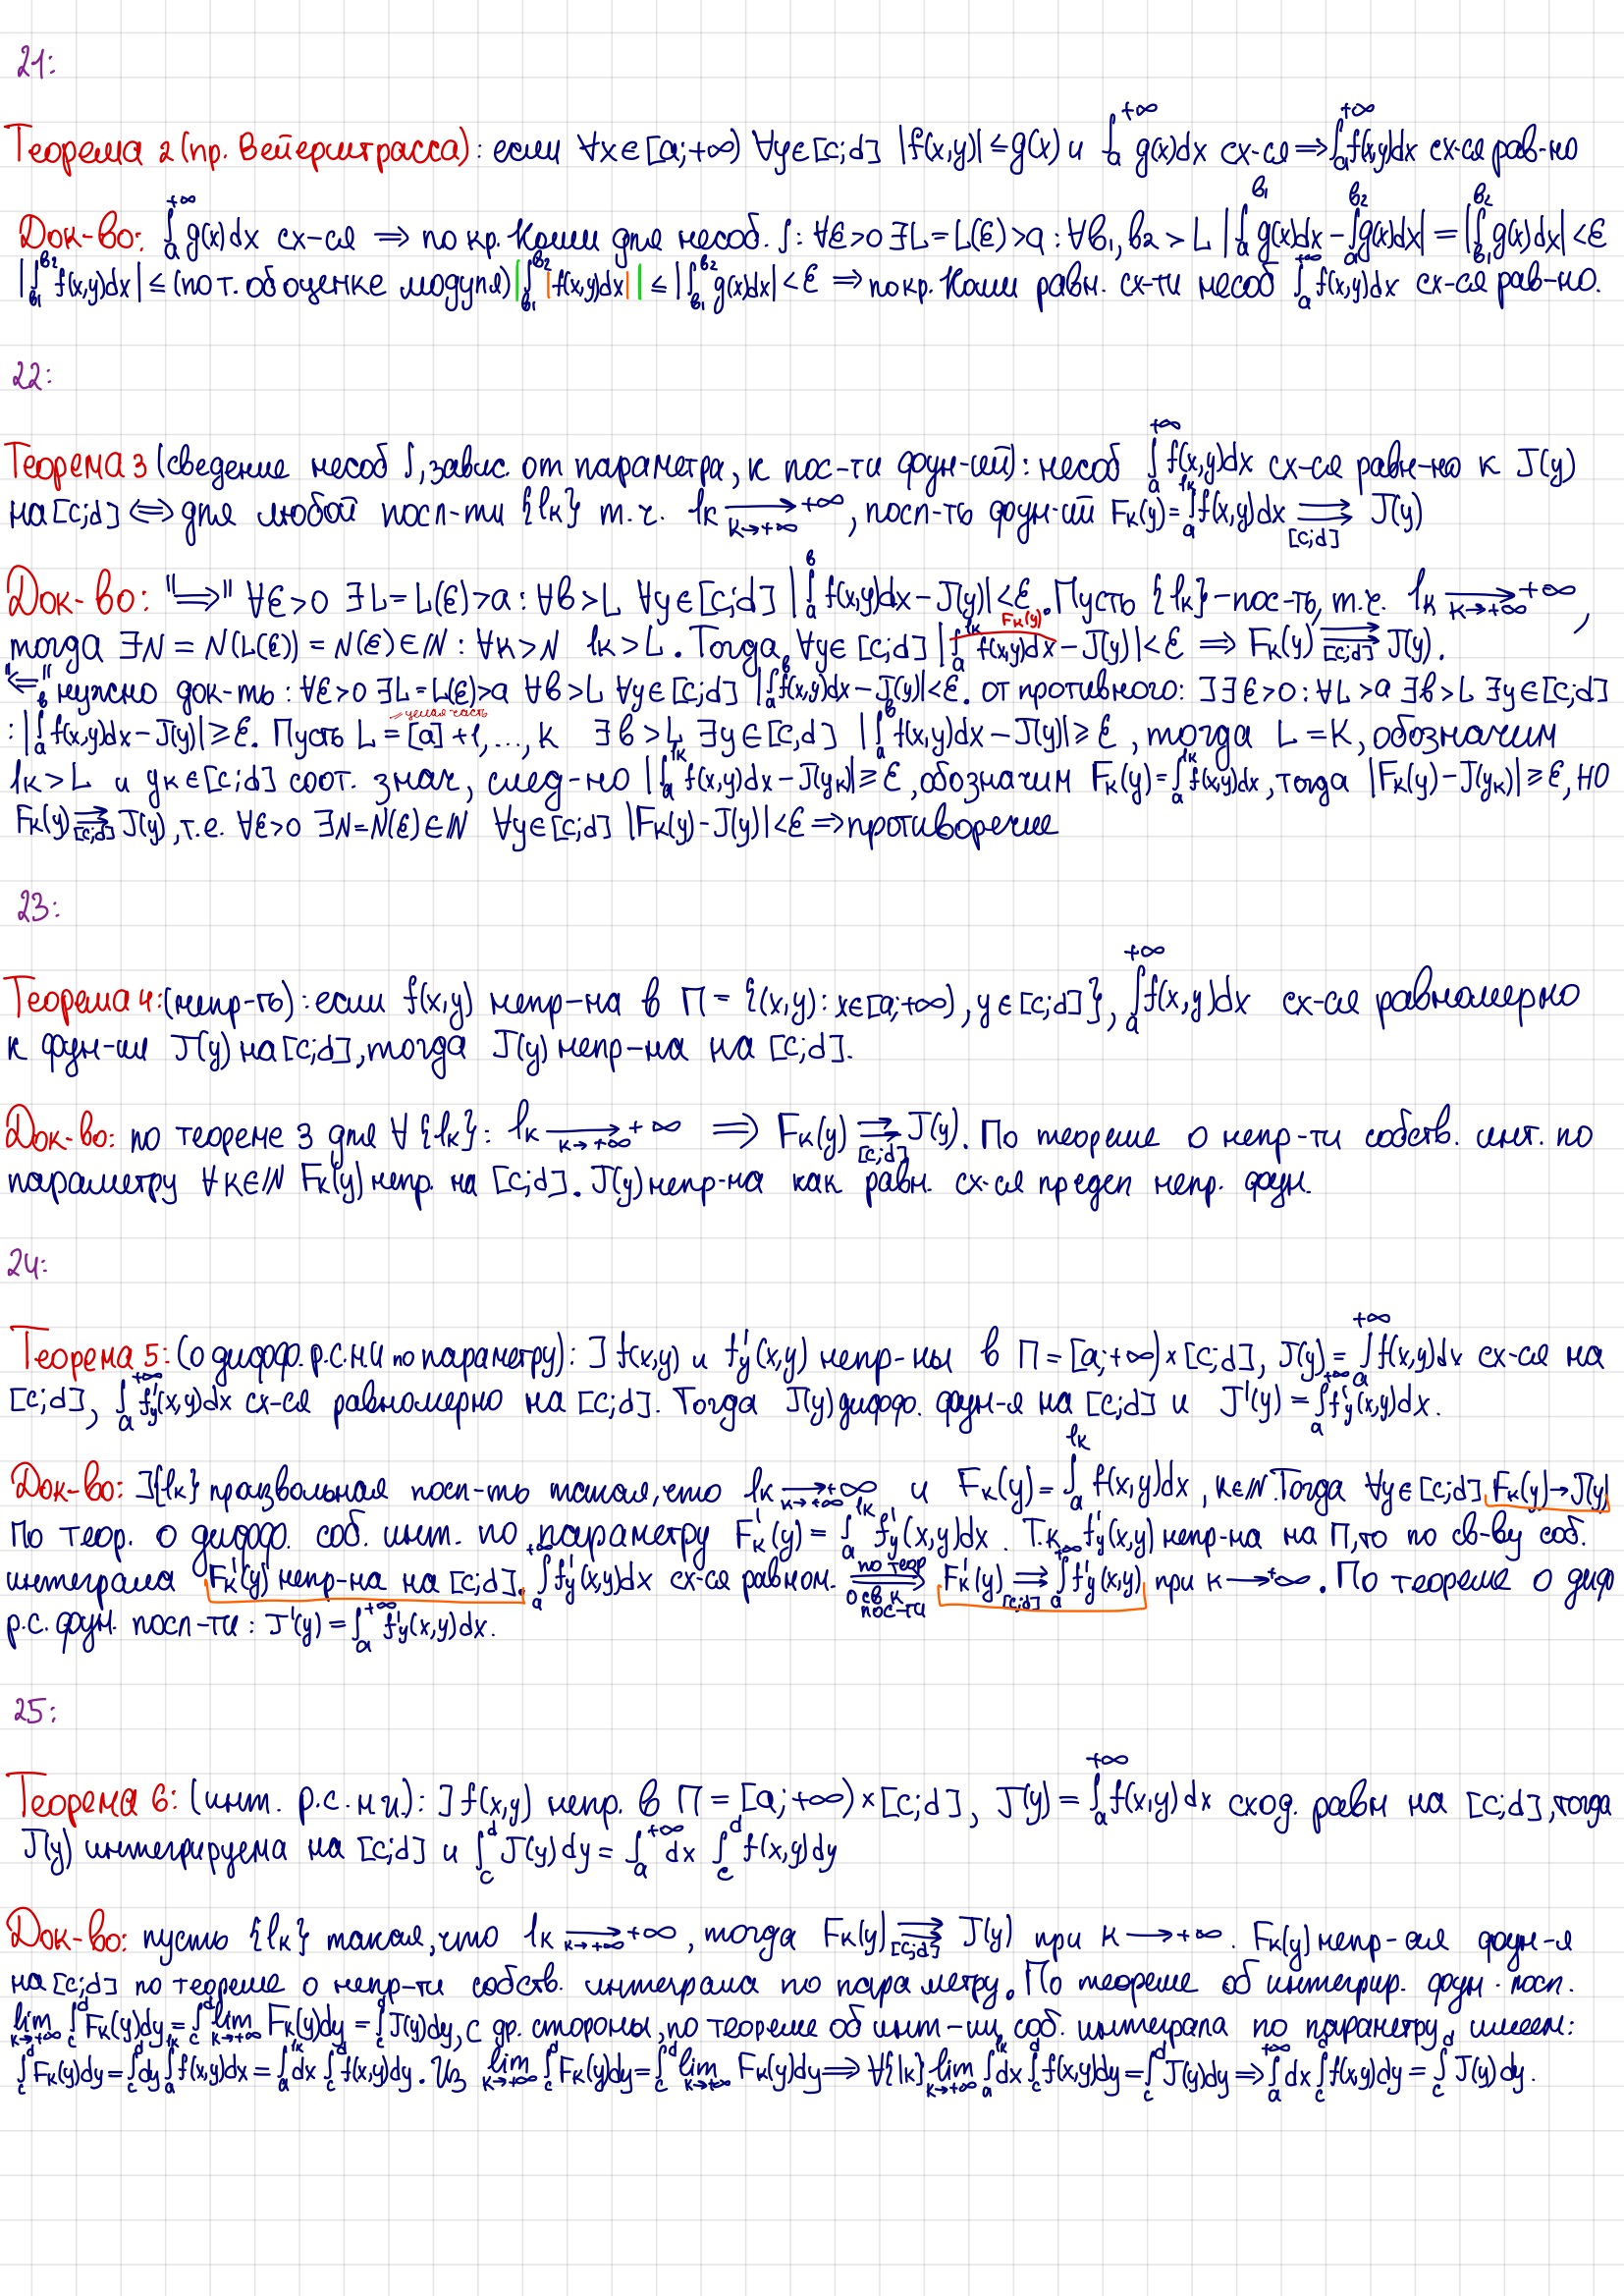 21:
Теорема 2 (пр. Вейерштрасса): если ∀x∈[a;+∞) ∀y∈[c;d] |f(x,y)|≤g(x) и ∫_a^{+∞} g(x)dx сх-ся ⇒ ∫_a^{+∞} f(x,y)dx сх-ся рав-но
Док-во: ∫_a^{+∞} g(x)dx сх-ся ⇒ по кр. Коши для несоб. ∫: ∀ε>0 ∃L=L(ε)>a: ∀b₁,b₂>L |∫_a^{b₁} g(x)dx − ∫_a^{b₂} g(x)dx| = |∫_{b₁}^{b₂} g(x)dx|<ε
|∫_{b₁}^{b₂} f(x,y)dx| ≤ (по т. об оценке модуля) |∫_{b₁}^{b₂} |f(x,y)dx|| ≤ |∫_{b₁}^{b₂} g(x)dx| < ε ⇒ по кр. Коши равн. сх-ти несоб ∫_a^{+∞} f(x,y)dx сх-ся рав-но.
22:
Теорема 3 (сведение несоб ∫, завис. от параметра, к пос-ти фун-ий): несоб ∫_a^{+∞} f(x,y)dx сх-ся равн-но к J(y)
на [c;d] ⇔ для любой посл-ти {l_k} т.ч. l_k →_{k→+∞} +∞, посл-ть фун-ий F_k(y)=∫_a^{l_k} f(x,y)dx ⇉_{[c;d]} J(y)
Док-во: "⇒" ∀ε>0 ∃L=L(ε)>a: ∀b>L ∀y∈[c;d] |∫_a^b f(x,y)dx−J(y)|<ε. Пусть {l_k}-пос-ть, т.ч. l_k →_{k→+∞} +∞,
тогда ∃N=N(L(ε))=N(ε)∈ℕ: ∀k>N l_k>L. Тогда ∀y∈[c;d] |∫_a^{l_k} f(x,y)dx−J(y)|<ε ⇒ F_k(y) ⇉_{[c;d]} J(y).
F_k(y)
"⇐" нужно док-ть: ∀ε>0 ∃L=L(ε)>a ∀b>L ∀y∈[c;d] |∫_a^b f(x,y)dx−J(y)|<ε. от противного: ] ∃ε>0: ∀L>a ∃b>L ∃y∈[c;d]
: |∫_a^b f(x,y)dx−J(y)|≥ε. Пусть L=[a]+1,...,k ∃b>L ∃y∈[c,d] |∫_a^b f(x,y)dx−J(y)|≥ε, тогда L=k, обозначим
целая часть
l_k>L и y_k∈[c;d] соот. знач, след-но |∫_a^{l_k} f(x,y)dx−J(y_k)|≥ε, обозначим F_k(y)=∫_a^{l_k} f(x,y)dx, тогда |F_k(y)−J(y_k)|≥ε, НО
F_k(y) ⇉_{[c;d]} J(y), т.е. ∀ε>0 ∃N=N(ε)∈ℕ ∀y∈[c;d] |F_k(y)−J(y)|<ε ⇒ противоречие
23:
Теорема 4: (непр-ть): если f(x,y) непр-на в П={(x,y): x∈[a;+∞), y∈[c;d]}, ∫_a^{+∞} f(x,y)dx сх-ся равномерно
к фун-ии J(y) на [c;d], тогда J(y) непр-на на [c;d].
Док-во: по теореме 3 для ∀{l_k}: l_k →_{k→+∞} +∞ ⇒ F_k(y) ⇉_{[c;d]} J(y). По теореме о непр-ти собств. инт. по
параметру ∀k∈ℕ F_k(y) непр. на [c;d]. J(y) непр-на как равн. сх-ся предел непр. фун.
24:
Теорема 5: (о дифф. р.с.н.и по параметру): ] f(x,y) и f'_y(x,y) непр-ны в П=[a;+∞)×[c;d], J(y)=∫_a^{+∞} f(x,y)dx сх-ся на
[c;d], ∫_a^{+∞} f'_y(x,y)dx сх-ся равномерно на [c;d]. Тогда J(y) дифф. фун-я на [c;d] и J'(y)=∫_a^{+∞} f'_y(x,y)dx.
Док-во: ]{l_k} празвольная посл-ть такая, что l_k →_{k→+∞} +∞ и F_k(y)=∫_a^{l_k} f(x,y)dx, k∈ℕ. Тогда ∀y∈[c;d] F_k(y)→J(y)
По теор. о дифф. соб. инт. по параметру F'_k(y)=∫_a^{l_k} f'_y(x,y)dx. Т.к. f'_y(x,y) непр-на на П, то по св-ву соб.
интеграла F'_k(y) непр-на на [c;d]. ∫_a^{+∞} f'_y(x,y)dx сх-ся равном. ⇒ (по теор о св. к пос-ти) F'_k(y) ⇉_{[c;d]} ∫_a^{+∞} f'_y(x,y) при k→+∞. По теореме о диф
р.с. фун. посл-ти: J'(y)=∫_a^{+∞} f'_y(x,y)dx.
25:
Теорема 6: (инт. р.с.н.и.): ] f(x,y) непр. в П=[a;+∞)×[c;d], J(y)=∫_a^{+∞} f(x,y)dx сход. равн на [c;d], тогда
J(y) интегрируема на [c;d] и ∫_c^d J(y)dy=∫_a^{+∞} dx ∫_c^d f(x,y)dy
Док-во: пусть {l_k} такая, что l_k →_{k→+∞} +∞, тогда F_k(y) ⇉_{[c;d]} J(y) при k→+∞. F_k(y) непр-ая фун-я
на [c;d] по теореме о непр-ти собств. интеграла по параметру. По теореме об интегрир. фун. посл.
lim_{k→+∞} ∫_c^d F_k(y)dy=∫_c^d lim_{k→+∞} F_k(y)dy=∫_c^d J(y)dy, с др. стороны, по теореме об инт-ии соб. интеграла по параметру имеем:
∫_c^d F_k(y)dy=∫_c^d dy ∫_a^{l_k} f(x,y)dx=∫_a^{l_k} dx ∫_c^d f(x,y)dy. Из lim_{k→+∞} ∫_c^d F_k(y)dy=∫_c^d lim_{k→+∞} F_k(y)dy ⇒ ∀{l_k} lim_{k→+∞} ∫_a^{l_k} dx ∫_c^d f(x,y)dy=∫_c^d J(y)dy ⇒ ∫_a^{+∞} dx ∫_c^d f(x,y)dy=∫_c^d J(y)dy.